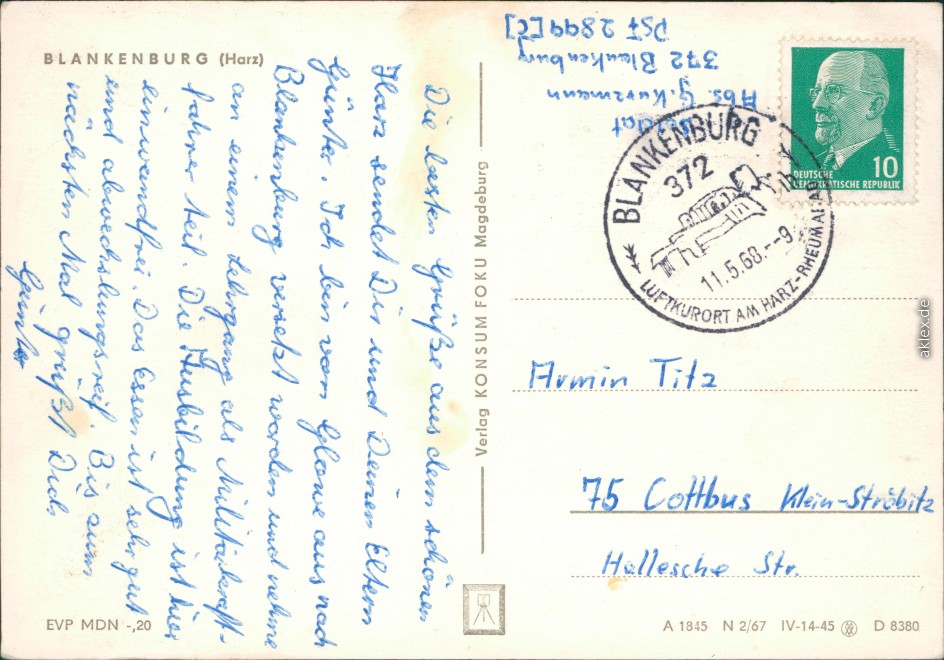 BLANKENBURG (Harz)
Die besten Grüße aus dem schönen
Harz sendet Dir und Deinen Eltern
Günter. Ich bin von Glowe aus nach
Blankenburg versetzt worden und nehme
an einem Lehrgang als Militärkraft-
fahrer teil. Die Ausbildung ist hier
einwandfrei. Das Essen ist sehr gut
und abwechslungsreif. Bis zum
nächsten Mal grüßt Dich
Günter
Verlag KONSUM FOKU Magdeburg
Soldat
Abs. G. Kurzmann
372 Blankenburg
PSF 2899[C]
BLANKENBURG
372
11.5.68.--9
LUFTKURORT AM HARZ-RHEUMABAD
10
DEUTSCHE
DEMOKRATISCHE REPUBLIK
Armin Titz
75 Cottbus Klein-Ströbitz
Hallesche Str.
EVP MDN -,20
A 1845 N 2/67 IV-14-45 D 8380
aklex.de